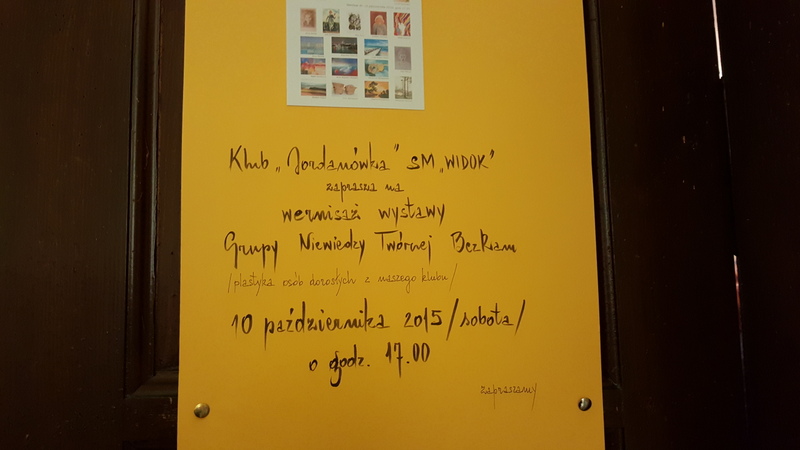 Klub „Jordanówka" SM „WIDOK"
zaprasza na
wernisaż wystawy
Grupy Niewiedzy Twórczej BezRam
/plastyka osób dorosłych z naszego klubu/
10 października 2015 /sobota/
o godz. 17.00
zapraszamy